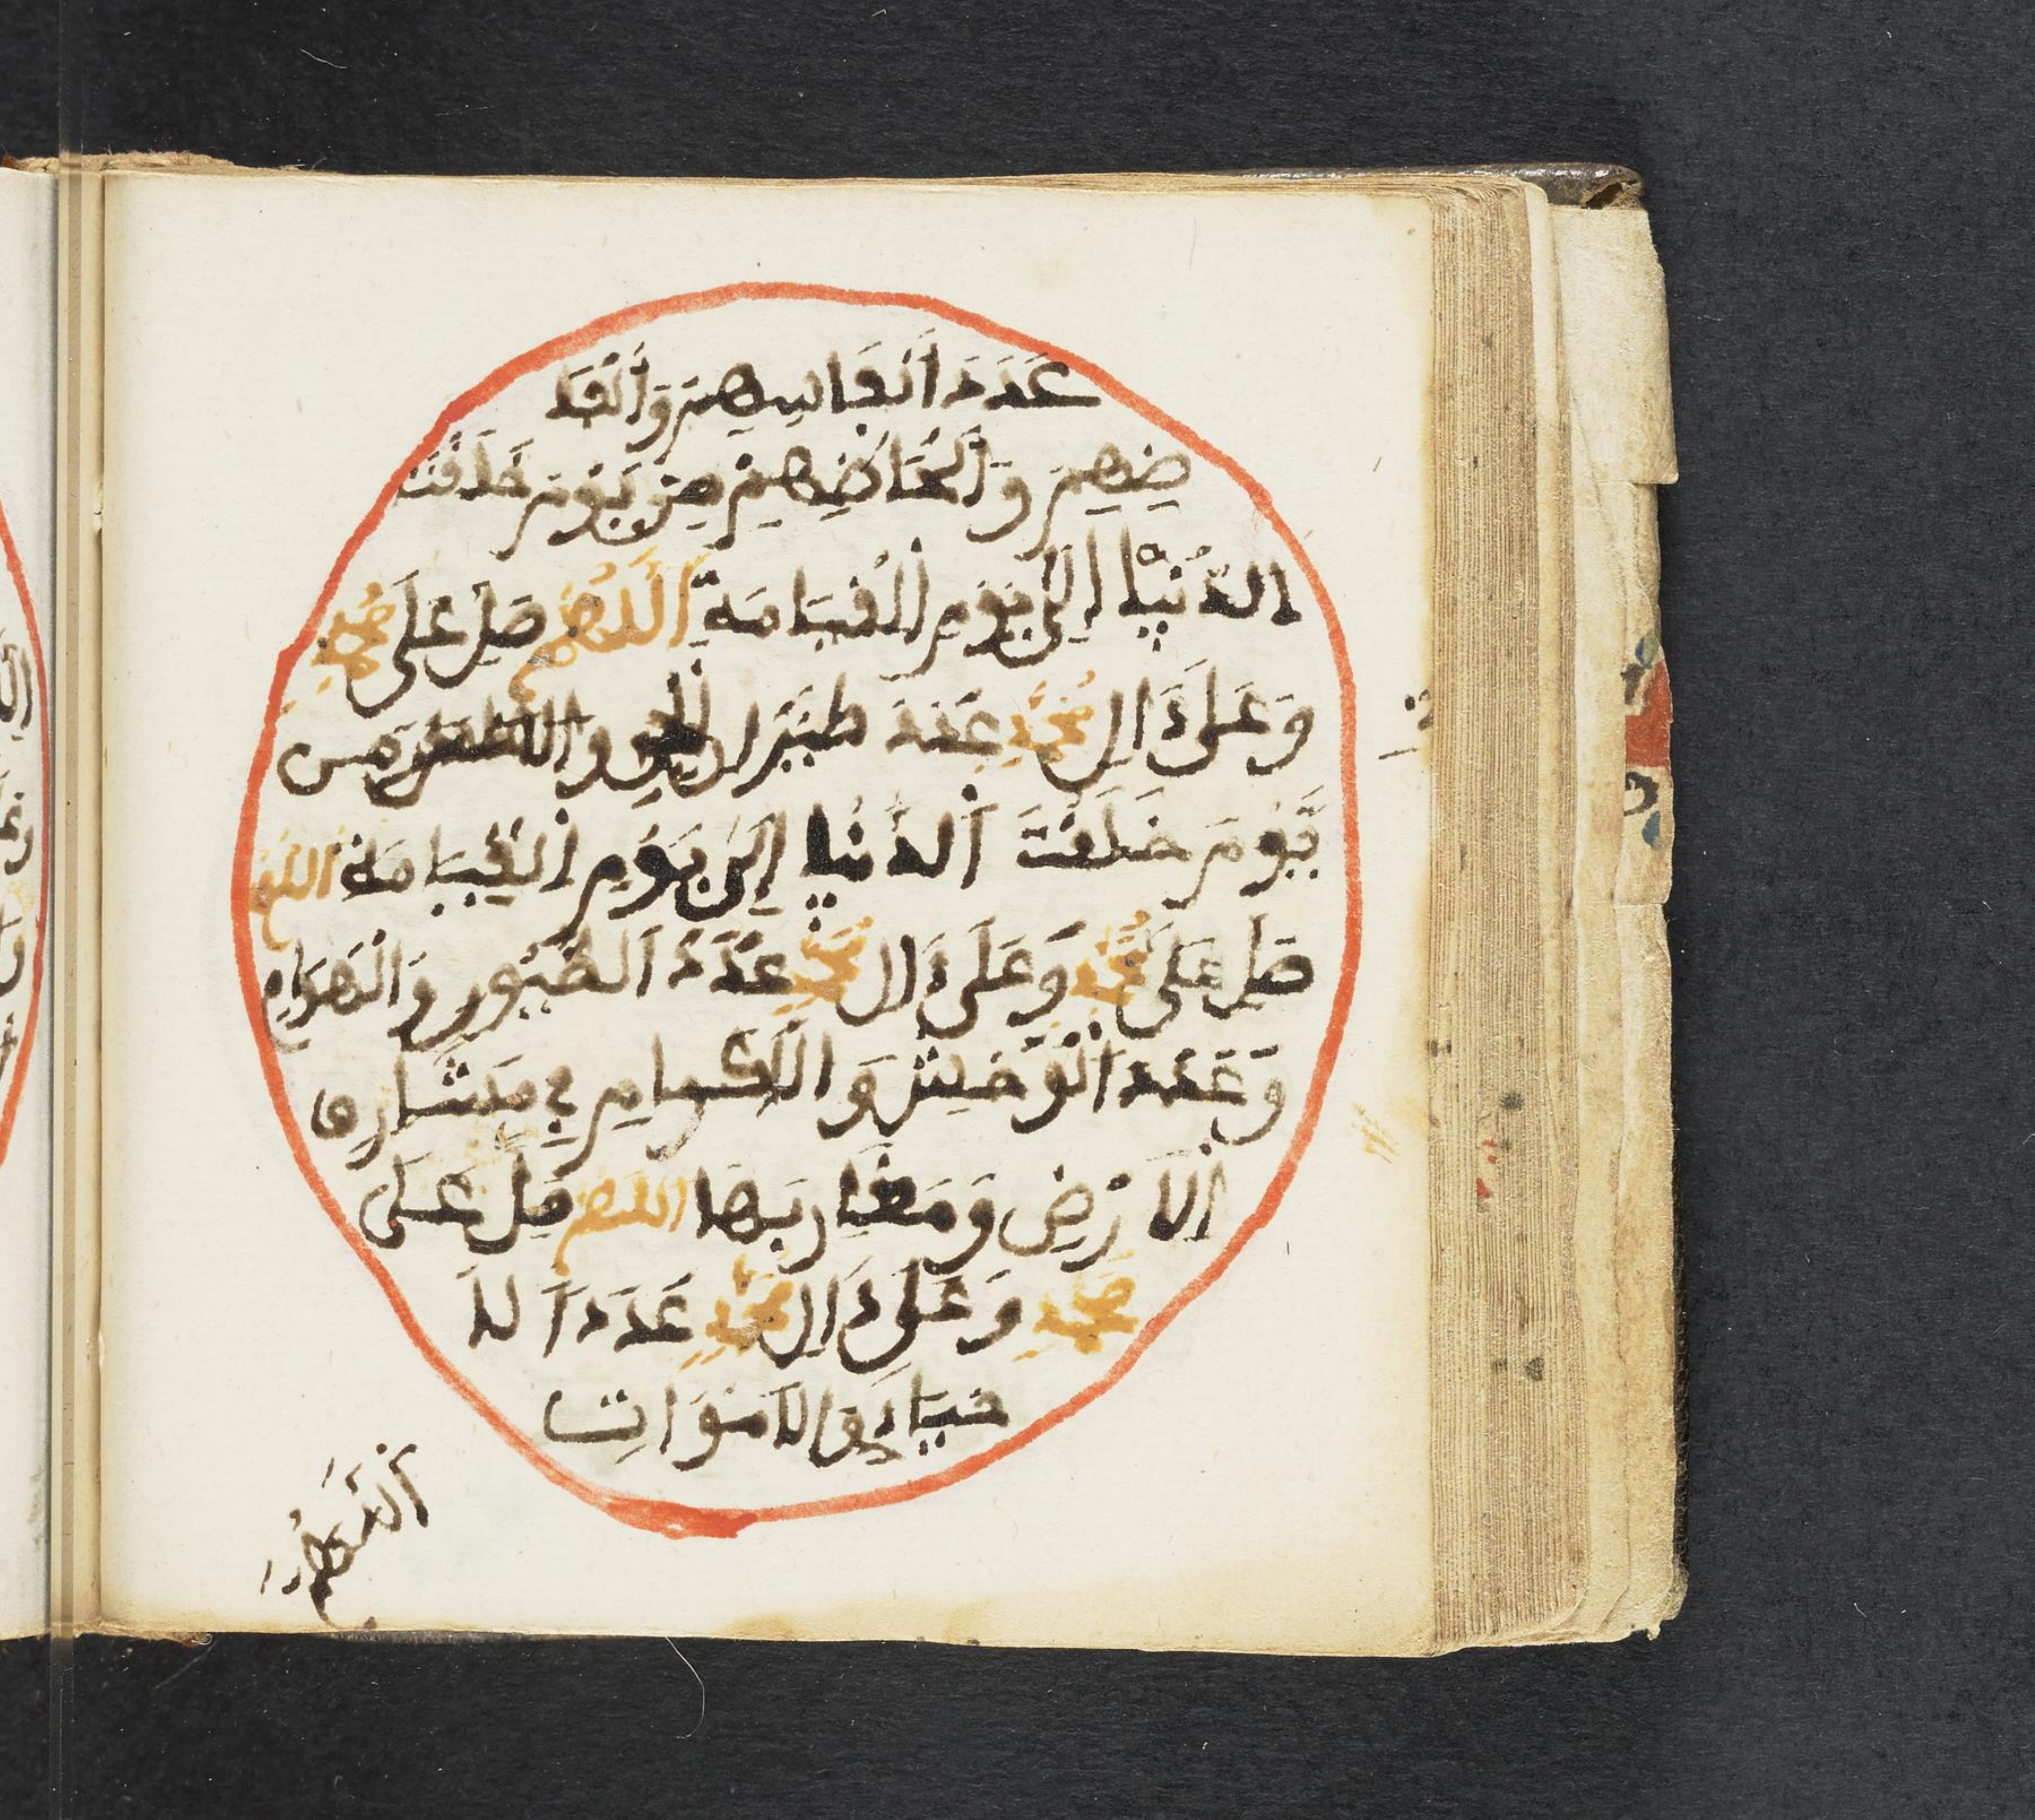 عَدَدَ أَنْفَاسِهِمْ وَأَلْفَا
ظِهِمْ وَأَلْحَاظِهِمْ مِنْ يَوْمَ خَلَقْتَ
الدُّنْيَا إِلَى يَوْمِ الْقِيَامَةِ اللَّهُمَّ صَلِّ عَلَى مُحَمَّدٍ
وَعَلَى ءَالِ مُحَمَّدٍ عَدَدَ طَيَرَانِ الْجِنِّ وَ مِن
يَّوْمَ خَلَقْتَ الدُّنْيَا إِلَى يَوْمِ الْقِيَامَةِ اللهم
صَلِّ عَلَى مُحَمَّدٍ وَعَلَى ءَالِ مُحَمَّدٍ عَدَدَ الطُّيُورِ وَالْهَوَامِ
وَعَدَدَ الْوُحُوشِ وَالْآكَامِ فِي مَشَارِقِ
الْأَرْضِ وَمَغَارِبِهَا اللهم صَلِّ عَلَى
مُحَمَّدٍ وَعَلَى ءَالِ مُحَمَّدٍ عَدَدَ الْأَ
حْيَاءِ وَالْأَمْوَاتِ
اَللَّهُمَّ